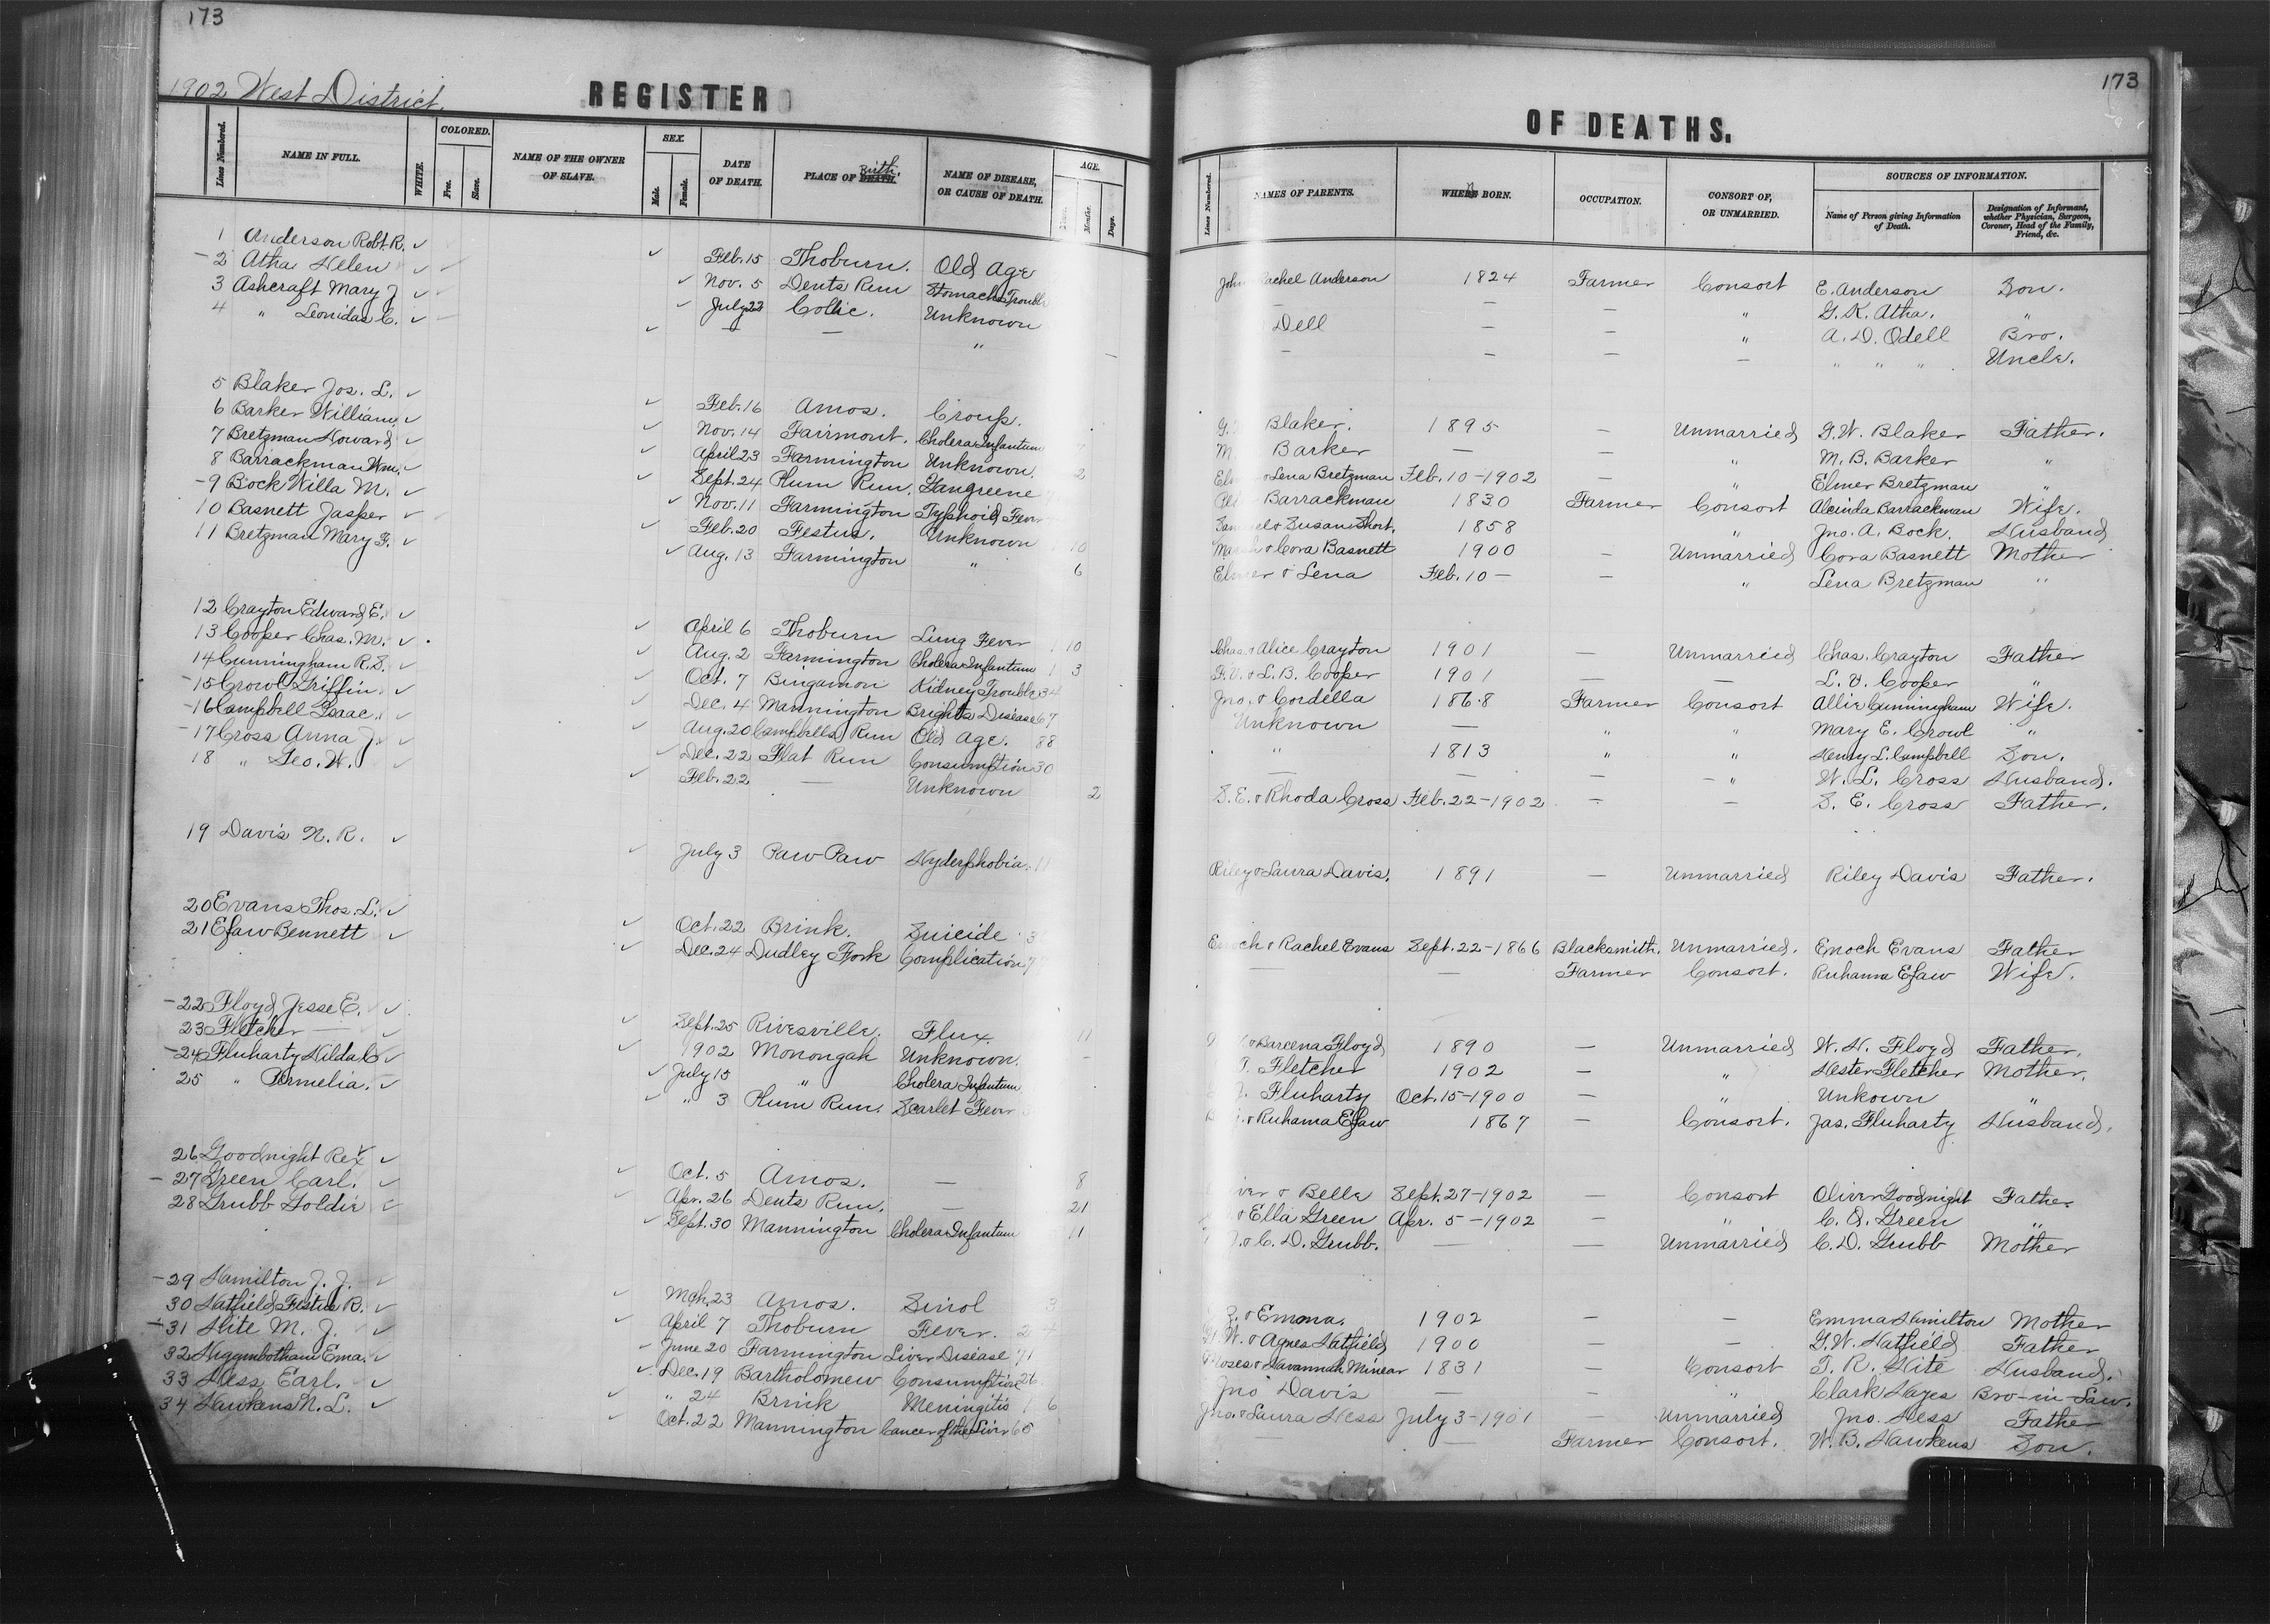 173
173
1902 West District.
REGISTER
OF DEATHS.
Lines Numbered. NAME IN FULL. WHITE. COLORED. Free. Slave. NAME OF THE OWNER OF SLAVE. SEX. Male. Female. DATE OF DEATH. PLACE OF DEATH. Birth. NAME OF DISEASE, OR CAUSE OF DEATH. AGE. Months. Days.
Lines Numbered. NAMES OF PARENTS. WHEN BORN. OCCUPATION. CONSORT OF, OR UNMARRIED. SOURCES OF INFORMATION. Name of Person giving Information of Death. Designation of Informant, whether Physician, Surgeon, Coroner, Head of the Family, Friend, &c.
1 Anderson Robt R. ✓ ✓ Feb. 15 Thoburn. Old Age John Rachel Anderson 1824 Farmer Consort E. Anderson Son.
2 Atha Helen ✓ ✓ Nov. 5 Dents Run Stomach Trouble — — — " G. K. Atha. "
3 Ashcraft Mary J ✓ ✓ July 22 Coltic. Unknown Dell — — " A. D. Odell Bro.
4 " Leonidas C. ✓ ✓ — — " — — — — — " " " Uncle.
5 Blaker Jos. L. ✓ ✓ Feb. 16 Amos. Croup. G. Blaker. 1895 — Unmarried G. W. Blaker Father.
6 Barker William ✓ ✓ Nov. 14 Fairmont. Cholera Infantum M. Barker — — " M. B. Barker "
7 Bretzman Howard ✓ ✓ April 23 Farmington Unknown. 2 Lena Bretzman Feb. 10-1902 — " Elmer Bretzman "
8 Barrackman Wm. ✓ ✓ Sept. 24 Plum Run. Gangreene Barrackman 1830 Farmer Consort Alcinda Barrackman Wife.
9 Bock Willa M. ✓ ✓ Nov. 11 Farmington Typhoid Fever Susan Short. 1858 " Jno. A. Bock. Husband
10 Basnett Jasper ✓ ✓ Feb. 20 Festus. Unknown 10 Cora Basnett 1900 — Unmarried Cora Basnett Mother
11 Bretzman Mary F. ✓ ✓ Aug. 13 Farmington " 6 Elmer & Lena Feb. 10 — — " Lena Bretzman "
12 Crayton Edward E. ✓ ✓ April 6 Thoburn Lung Fever 1 10 Chas. & Alice Crayton 1901 — Unmarried Chas. Crayton Father
13 Cooper Chas. M. ✓ ✓ Aug. 2 Farmington Cholera Infantum 1 3 & L. B. Cooper 1901 — — L. V. Cooper "
14 Cunningham R. S. ✓ ✓ Oct. 7 Bingamon Kidney Trouble 34 Jno. & Cordella 1868 Farmer Consort Allie Cunningham Wife.
15 Crowl Griffin ✓ ✓ Dec. 4 Mannington Brights Disease 67 Unknown — " " Mary E. Crowl "
16 Campbell Isaac. ✓ ✓ Aug. 20 Campbells Run Old Age. 88 " 1813 " " Henry L. Campbell Son.
17 Cross Anna J. ✓ ✓ Dec. 22 Flat Run Consumption 30 — — — " W. L. Cross Husband.
18 " Geo. W. ✓ ✓ Feb. 22 — Unknown 2 S. E. & Rhoda Cross Feb. 22-1902 — — S. E. Cross Father.
19 Davis N. R. ✓ ✓ July 3 Paw Paw Hyderphobia 11 Riley & Laura Davis. 1891 — Unmarried Riley Davis Father.
20 Evans Thos. L. ✓ ✓ Oct. 22 Brink. Suicide Enoch & Rachel Evans Sept. 22-1866 Blacksmith. Unmarried. Enoch Evans Father
21 Efaw Bennett ✓ ✓ Dec. 24 Dudley Fork Complication — — Farmer Consort. Ruhama Efaw Wife.
22 Floyd Jesse E. ✓ ✓ Sept. 25 Rivesville. Flux. 11 & Barcena Floyd 1890 — Unmarried W. H. Floyd Father.
23 Fletcher — ✓ ✓ 1902 Monongah Unknown. — T. Fletcher 1902 — " Hester Fletcher Mother.
24 Fluharty Hilda C ✓ ✓ July 15 " Cholera Infantum Fluharty Oct. 15-1900 — " Unkown "
25 " Permelia. ✓ ✓ " 3 Plum Run. Scarlet Fever & Ruhama Efaw 1867 — Consort. Jas. Fluharty Husband.
26 Goodnight Rex ✓ ✓ Oct. 5 Amos. — 8 & Belle Sept. 27-1902 — Consort Oliver Goodnight Father.
27 Green Carl. ✓ ✓ Apr. 26 Dents Run. — 21 & Ella Green Apr. 5-1902 — " C. O. Green "
28 Grubb Goldie ✓ ✓ Sept. 30 Mannington Cholera Infantum 11 & C. D. Grubb. — — Unmarried C. D. Grubb Mother
29 Hamilton J. J. ✓ ✓ Mch. 23 Amos. 3 & Emma. 1902 — — Emma Hamilton Mother
30 Hatfield Festus R. ✓ ✓ April 7 Thoburn Fever. 2 4 W. & Agnes Hatfield 1900 — — G. W. Hatfield Father
31 Hite M. J. ✓ ✓ June 20 Farmington Liver Disease 71 Moses & Savannah Minear 1831 — Consort T. R. Hite Husband.
32 Higgenbotham Ema. ✓ ✓ Dec. 19 Bartholomew Consumption 26 Jno Davis — — " Clark Hayes Bro-in-Law.
33 Hess Earl. ✓ ✓ " 24 Brink Meningitis 1 6 Jno. & Laura Hess July 3-1901 — Unmarried Jno. Hess Father
34 Hawkens N. L. ✓ ✓ Oct. 22 Mannington Cancer of the Liver 65 — — Farmer Consort. W. B. Hawkens Son.